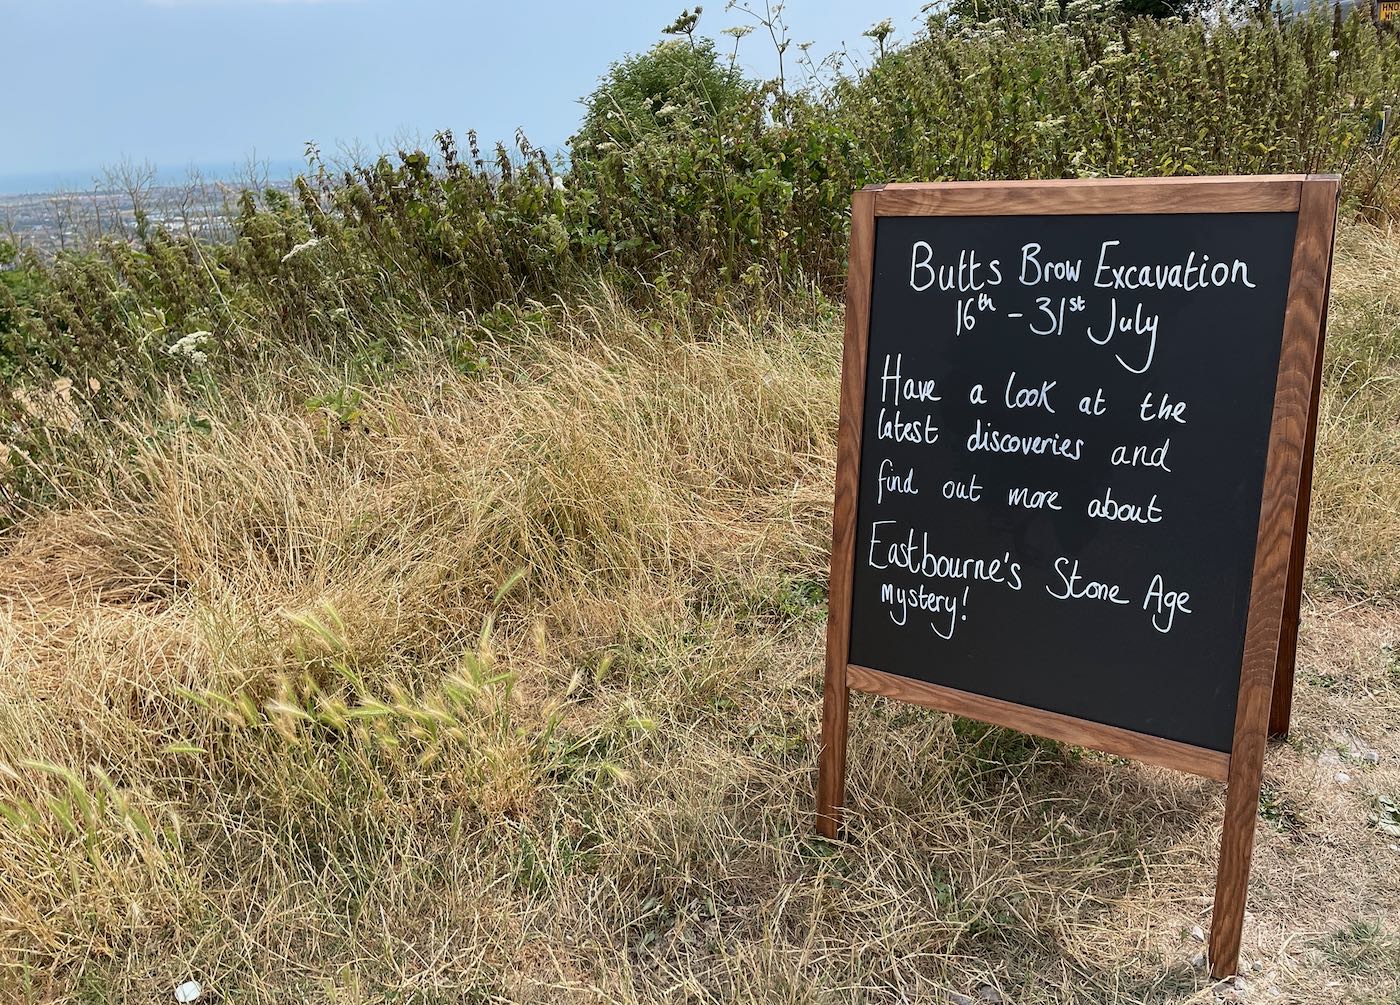 Butts Brow Excavation
16th - 31st July
Have a look at the
latest discoveries and
find out more about
Eastbourne's Stone Age
mystery!